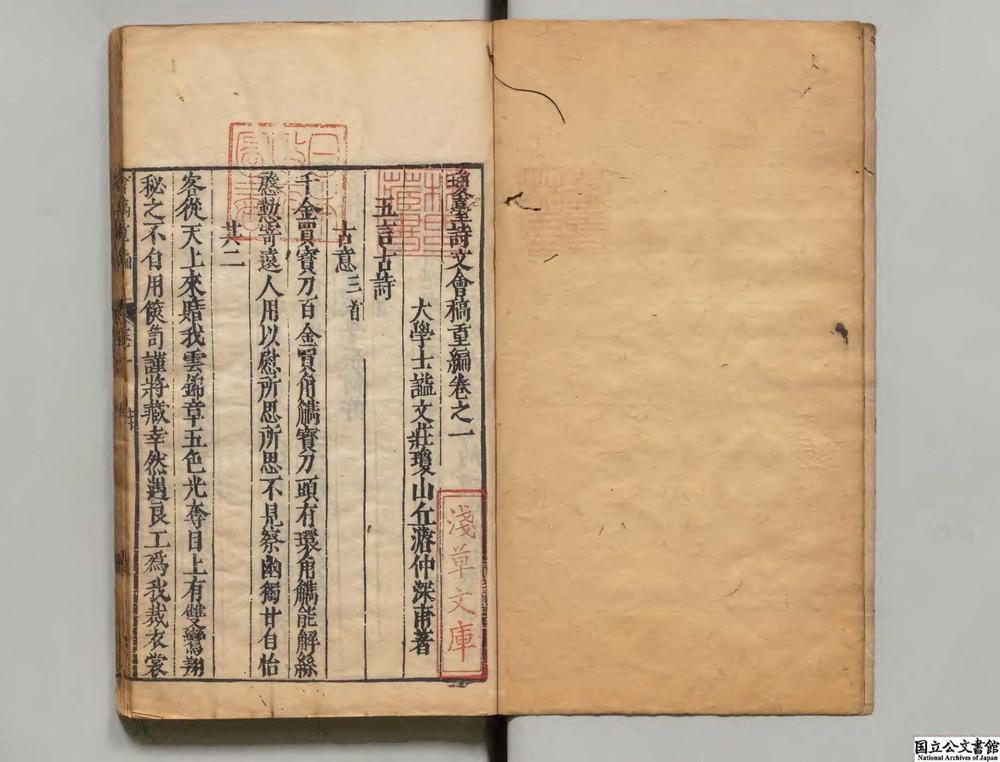 瓊臺詩文會稿重編卷之一
大學士謚文莊瓊山丘濬仲深甫著
五言古詩
古意三首
千金買寶刀百金買角觿寶刀頭有環角觿能解絲
慇懃寄遠人用以慰所思所思不見察幽獨甘自怡
其二
客從天上來贈我雲錦章五色光奪目上有雙鸞翔
秘之不自用篋笥謹將藏幸然遇良工爲我裁衣裳
淺草文庫
国立公文書館
National Archives of Japan